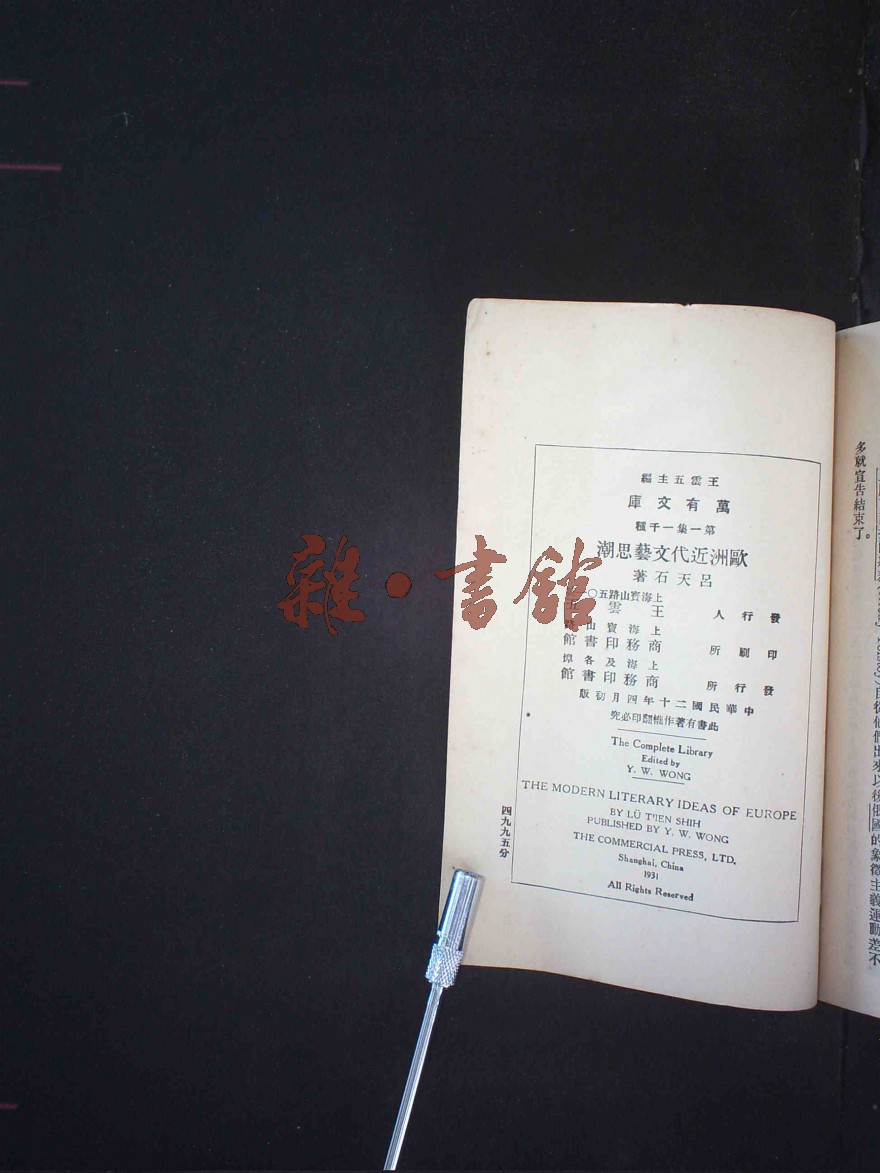 王雲五主編
萬有文庫
第一集一千種
歐洲近代文藝思潮
呂天石著
上海寶山路五〇
發行人 王雲五
上海寶山
印刷所 商務印書館
上海及各埠
發行所 商務印書館
中華民國二十年四月初版
此書有著作權翻印必究
The Complete Library
Edited by
Y. W. WONG
THE MODERN LITERARY IDEAS OF EUROPE
BY LÜ T'IEN SHIH
PUBLISHED BY Y. W. WONG
THE COMMERCIAL PRESS, LTD.
Shanghai, China
1931
All Rights Reserved
四九九五分
自從他們出來以後俄國的象徵主義運動差不
多就宣告結束了。
雜·書館